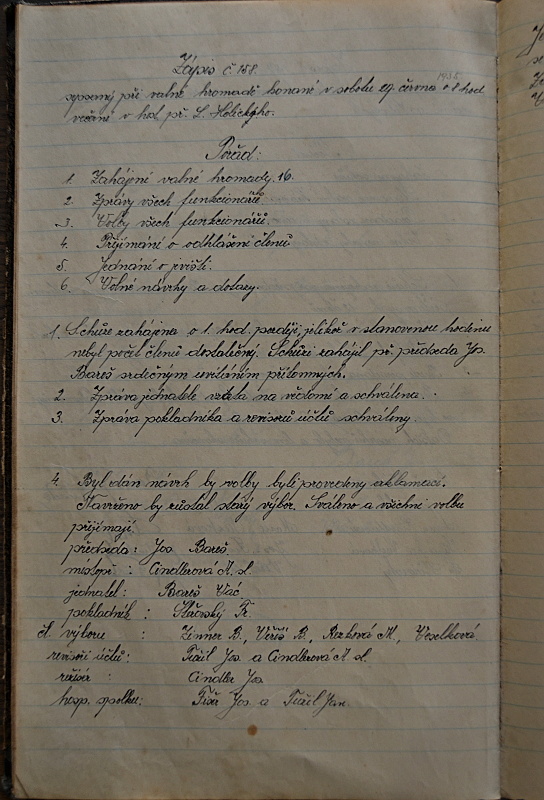 Zápis č. 158.
1935
sepsaný při valné hromadě konané v sobotu 29. června o 8 hod
večerní v hd. př. L. Holického.
Pořad:
1. Zahájení valné hromady. 16.
2. Zprávy všech funkcionářů.
3. Volby všech funkcionářů.
4. Přijímání o odhlášení členů
5. Jednání o jevišti.
6. Volné návrhy a dotazy.
1. Schůze zahájena o 1. hod. později, jelikož v stanovenou hodinu
nebyl počet členů dostatečný. Schůzi zahájil př. předseda Jos.
Bareš srdečným uvítáním přítomných.
2. Zpráva jednatele vzata na vědomí a schválena.
3. Zpráva pokladníka a revisorů účtů schváleny.
4. Byl dán návrh by volby byli provedeny aklamací.
Navrženo by zůstal starý výbor. Sváleno a všichni volbu
přijímají.
předseda: Jos Bareš
místopř: Cindlerová A. st.
jednatel: Bareš Vác
pokladník: Fr.
čl. výboru: Zinner B., B., M., Veselková
revisoři účtů: Jos. a Cindlerová A st.
režisér: Cindler Jos
hosp. spolku: Jos a Jan.